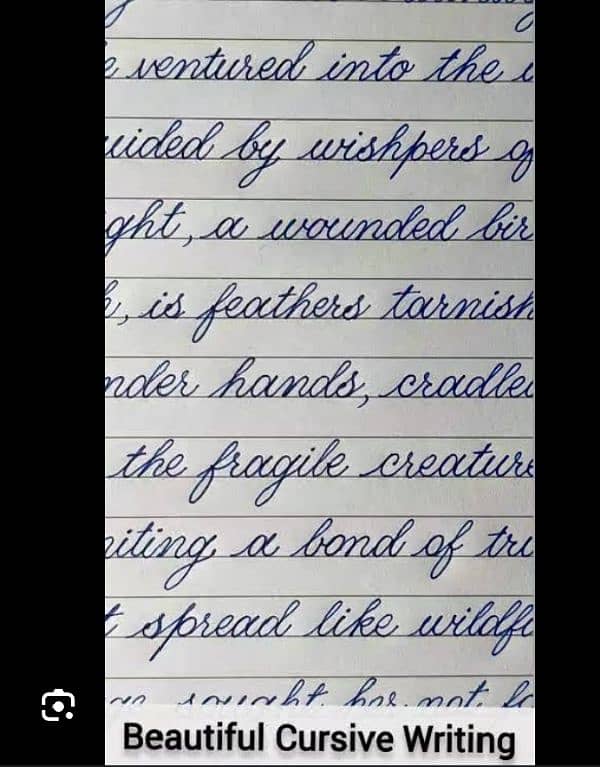 e ventured into the
uided by wishpers of
ght, a wounded bir
h, is feathers tarnish
nder hands, cradle
the fragile creature
iting a bond of tru
t spread like wildfi
sought her not fo
Beautiful Cursive Writing